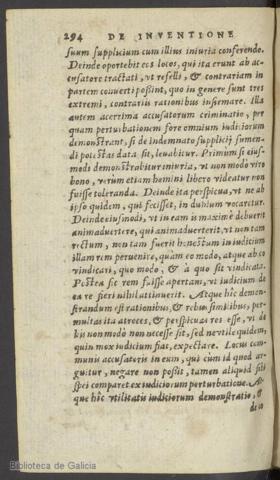 294 DE INVENTIONE
suum supplicium cum illius iniuria conferendo.
Deinde oportebit eos locos, qui ita erunt ab ac-
cusatore tractati, vt refelli, & contrariam in
partem conuerti possint, quo in genere sunt tres
extremi, contrariis rationibus infirmare. Illa
autem acerrima accusatorum criminatio, per
quam perturbationem fore omnium iudiciorum
demonstrant, si de indemnato supplicij sumen-
di potestas data sit, leuabitur. Primum si eius-
modi demonstrabitur iniuria, vt non modò viro
bono, verùm etiam homini libero videatur non
fuisse toleranda. Deinde ita perspicua, vt ne ab
ipso quidem, qui fecisset, in dubium vocaretur.
Deinde eiusmodi, vt in eam is maximè debuerit
animaduertere, qui animaduerterit, vt non tam
rectum, non tam fuerit honestum in iudicium
illam rem peruenire, quàm eo modo, atque ab eo
vindicari, quo modo, & à quo sit vindicata.
Postea sic rem fuisse apertam, vt iudicium de
ea re fieri nihil attinuerit. Atque hîc demon-
strandum est rationibus, & rebus similibus, per-
multas ita atroces, & perspicuas res esse, vt de
his non modò non necesse sit, sed ne vtile quidem,
quin mox iudicium fiat, expectare. Locus com-
munis accusatoris in eum, qui cùm id quod ar-
guitur, negare non possit, tamen aliquid sibi
spei comparet ex iudiciorum perturbatione. At-
que hîc vtilitatis iudiciorum demonstratio, &
de eo
Biblioteca de Galicia